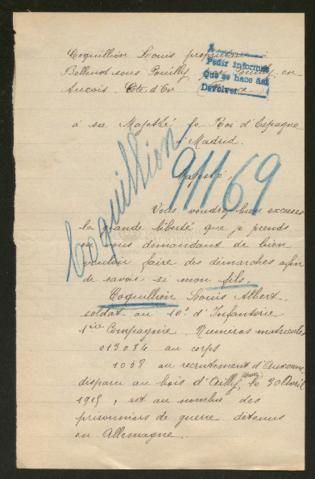 Coquillion Louis propriétaire à
Bellenot-sous Pouilly, Pouilly-en
Auxois Côte d'Or
A
Pedir informes
Que se hace así
Devolver
à sa Majesté le Roi d'Espagne
Madrid
Coquillion
91169
Vous voudrez bien excuser
la grande liberté que je prends
en vous demandant de bien
vouloir faire des démarches afin
de savoir si mon fils.
Coquillion Louis Albert
soldat au 10e d'Infanterie
1ère Compagnie. Numéros matricules
013.034 au corps
1058 au recrutement d'Auxonne
disparu au bois d'Ailly, le 30 Avril
1915, est au nombre des
prisonniers de guerre détenus
en Allemagne.